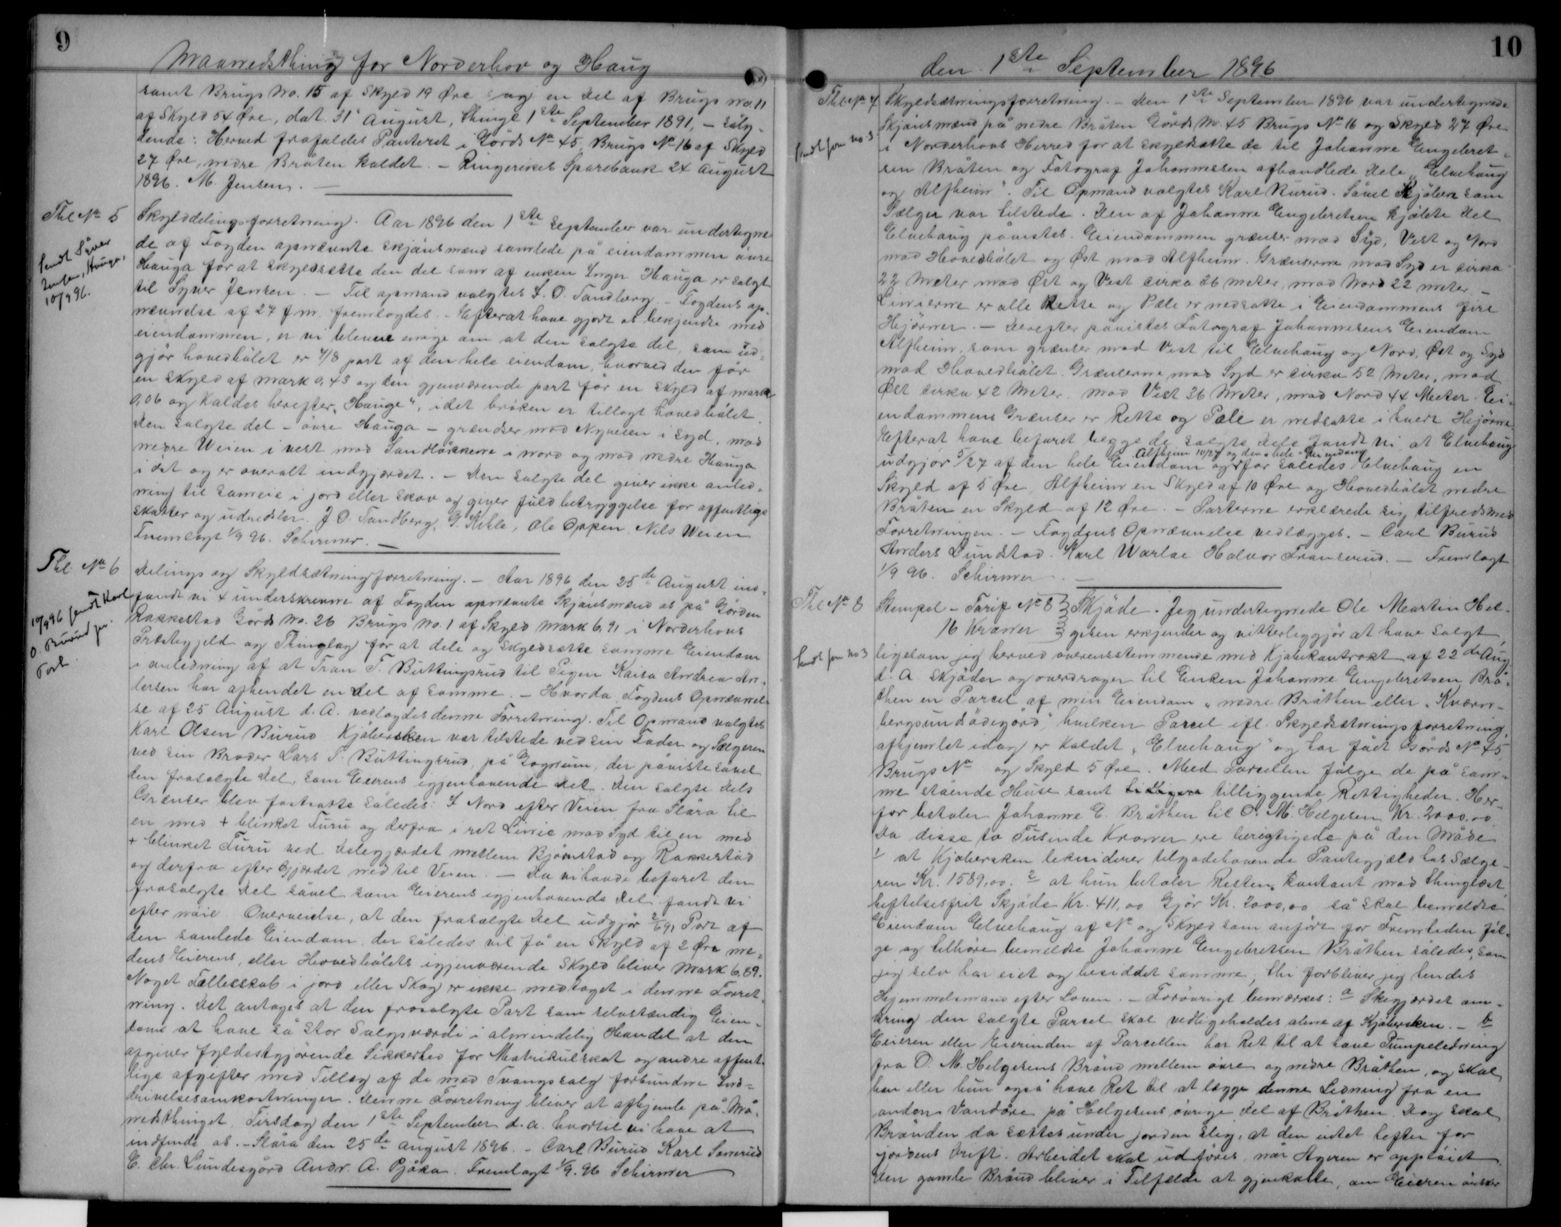 9
Maanedsthing for Norderhov og Haug
samt Brugs No. 15 af Skyld 19 Øre og en del af Brugs no. 11
af Skyld 54 Øre, dat. 31 August, thingl. 1ste September 1891, – saaly-
dende: Herved frafaldes Panteret i Gårds No 45, Brugs No 16 af Skyld
27 Øre, nedre Bråten kaldet. – Ringerikes Sparebank 24 August
1896. M. Jensen. –
Thl. No 5
Sendt Syver
Jensen, Hauga,
10/9 96.
Skylddelingsforretning. Aar 1896 den 1ste September var undertegne-
de af Fogden opnævnte skjønsmænd samlede på eiendommen øvre
Hauga for at skyldsætte den del som af enken Inger Hauga er solgt
til Syver Jensen. – Til opmand valgtes J. O. Tandberg. – Fogdens op-
nævnelse af 27 f. m. fremlagdes. – Efterat have gjort os bekjendte med
eiendommen, er vi blevne enige om at den solgte del, som ud-
gjør hovedbølet er 7/8 part af den hele eiendom, hvorved den får
en skyld af mark 0,43 og den gjenværende part får en skyld af mark
0,06 og kaldes herefter "Hauge", idet brøken er tillagt hovedbølet.
Den solgte del – øvre Hauga – grændser mod Nyveien i syd, mod
nedre Weien i vest mod Sandhåkkerne i nord og mod nedre Hauga
i øst og er overalt indgjærdet. – Den solgte del giver ikke anled-
ning til sameie i jord eller skov og giver fuld betryggelse for offentlige
skatter og udredsler. J. O. Tandberg, G. Kihle, Ole Opken Nils Weien
Fremlagt 1/9 96. Schirmer. –
Thl No 6
10/9 96 sendt Karl
O. Burud pr.
Post.
Delings og Skyldsætningsforretning. – Aar 1896 den 25de August ind-
fandt vi 4 underskrevne af Fogden opnævnte Skjønsmænd os på Gården
Rakkestad Gårds No. 26 Brugs No. 1 af Skyld Mark 6,91 i Norderhovs
Præstegjeld og Thinglag for at dele og skyldsætte samme Eiendom
i anledning af at Fran T. Buttingsrud til Pigen Karen Andrea An-
dersen har afhendet en del af samme. – Hvorda Fogdens Opnævnel-
se af 25 August d. A. vedlagdes denne Forretning. Til Opmand valgtes
Karl Olsen Burud Kjøbersken var tilstede ved sin Fader og Sælgeren
ved sin Broder Lars T. Buttingsrud, på Gognum, der påviste såvel
den frasolgte Del, som Eierens egjenhavende Del. Den solgte Dels
Grændser blev fastsatte således: I Nord efter Veien fra Slåra til
en med + blinket Furu og derfra i ret Linie mod Syd til en med
+ blinket Furu ved Delegjærdet mellem Bjørnstad og Rakkestad
og derfra efter Gjerdet ned til Veien. – Da vi havde befaret den
frasolgte Del såvel som Eierens igjenhavende Del fandt vi
efter nøie Overveielse, at den frasolgte Del udgjør 2/691 Part af
den samlede Eiendom der således vil få en Skyld af 2 Øre me-
dens Eierens, eller Hovedbølets igjenværende Skyld bliver Mark 6,89.
Noget Fællesskab i jord eller Skog er ikke medtaget i denne Forret-
ning. Det antages at den frasolgte Part som selvstændig Eien-
dom at have så stor Salgsværdi i almindelig Handel at den
afgiver fyldestgjørende Sikkerhed for Matrikulskat og andre offent-
lige afgifter med Tillæg af de med Tvangssalg forbundne Ind-
drivelsesomkostninger. Denne Forretning bliver at afhjemle på Må-
nedsthinget Tirsdag den 1ste September d. a. hvortil vi have at
indfinde os. – Slåra den 25de August 1896. – Carl Burud Karl Sørerud
E. Chr. Lundesgård Andr. A. Bjåka. Fremlagt 1/9. 96 Schirmer
10
den 1ste September 1896
Thl No 7
sendt som no 3
Skyldsætningsforretning. – Den 1ste September 1896 var undertegnede
Skjønsmænd på nedre Bråten Gårds No. 45 Brugs No 16 og Skyld 27 Øre
i Norderhovs Herred for at skyldsætte de til Johanne Engebret-
sen Bråten og Fotograf Johannessen afhandlede Dele "Elvehaug
og Alfheim". Til Opmand valgtes Karl Burud. Såvel Kjøbere som
Sælger var tilstede. Den af Johanne Engebretsen kjøbte Del
Elvehaug påvistes. Eiendommen grændser mod Syd, Vest og Nord
mod Hovedbølet og Øst mod Alfheim. Grænserne mod Syd er cirka
22 Meter mod Øst og Vest cirka 36 meter, mod Nord 22 meter. –
Linierne er alle Rette og Pæle er nedsatte i Eiendommens fire
Hjørner. – Derefter påvistes Fotograf Johannesens Eiendom
Alfheim, som grænser mod Vest til Elvehaug og Nord, Øst og Syd
mod Hovedbølet. Grænserne mod Syd er cirka 52 Meter, mod
Øst cirka 42 Meter, mod Vest 36 Meter, mod Nord 44 Meter. Ei-
endommens Grænser er Rette og Pæle er nedsatte i hvert Hjørne
Efterat have befaret begge de solgte dele fandt vi at Elvehaug
udgjør 5/27 af den hele Eiendom og Alfheim 10/27 og den hele Eiendom får således Elvehaug en
Skyld af 5 Øre, Alfheim en Skyld af 10 Øre og Hovedbølet nedre
Bråten en Skyld af 12 Øre. – Parterne erklærede sig tilfreds med
Forretningen. – Fogdens Opnævnelse vedlægges. – Carl Burud
Anders Lundstad. Karl Warlae Halvor Franserud. – Fremlagt
1/9 96. Schirmer. –
Thl No 8
sendt som no 3
Stempel – Tarif No 8
16 Kroner
Skjøde. – Jeg undertegnede Ole Martin Hel-
gesen erkjender og vitterliggjør at have solgt,
ligesom jeg herved overensstemmende med Kjøbekontrakt af 22de Aug.
d. A. skjøder og overdrager til Enken Johanne Engebretsen Brå-
then en Parcel af min Eiendom "nedre Bråthen eller "Kværn-
bergsundødegård", hvilken Parcel efl. Skyldsætningsforretning,
afhjemlet idag er kaldet "Elvehaug" og har fået Gårds No 45,
Brugs No og Skyld 5 Øre. Med Parcellen følge de på sam-
me stående Huse samt tilliggende Rettigheder. Her-
for betaler Johanne E. Bråthen til O. M. Helgesen Kr. 2000,00.
Da disse to Tusende Kroner ere berigtigede på den Måde
1 at Kjøbersken lekviderer tilgodehavende Pantegjæld hos Sælge-
ren Kr. 1589,00. 2 at hun betaler Resten kontant mod thinglæst
heftelsesfrit Skjøde Kr. 411,00 Gjør Kr. 2000,00 så skal bemeldte
Eiendom Elvehaug af No og Skyld som anført for Fremtiden føl-
ge og tilhøre bemeldte Johanne Engebretsen Bråthen således, som
jeg selv har eiet og besiddet samme, thi forbliver jeg hendes
Hjemmelsmand efter Loven. – Forøvrigt bemærkes: a Skigjærdet om-
kring den solgte Parcel skal vedligeholdes alene af Kjøbersken. – b
Eieren eller Eierinden af Parcellen har Ret til at have Pumpeledning
fra O. M. Helgesens Brønd mellem øvre og nedre Bråthen, og skal
han eller hun også have Ret til at lægge denne Ledning fra en
anden Vandåre på Helgesens øvrige Del af Bråthen. Dog skal
Brønden da sættes under jorden slig, at den intet hefter for
jordens Drift. Arbeidet skal udføres, når Ageren er oppløiet
Den gamle Brønd bliver i Tilfælde at gjenkaste, om Eieren ønsker